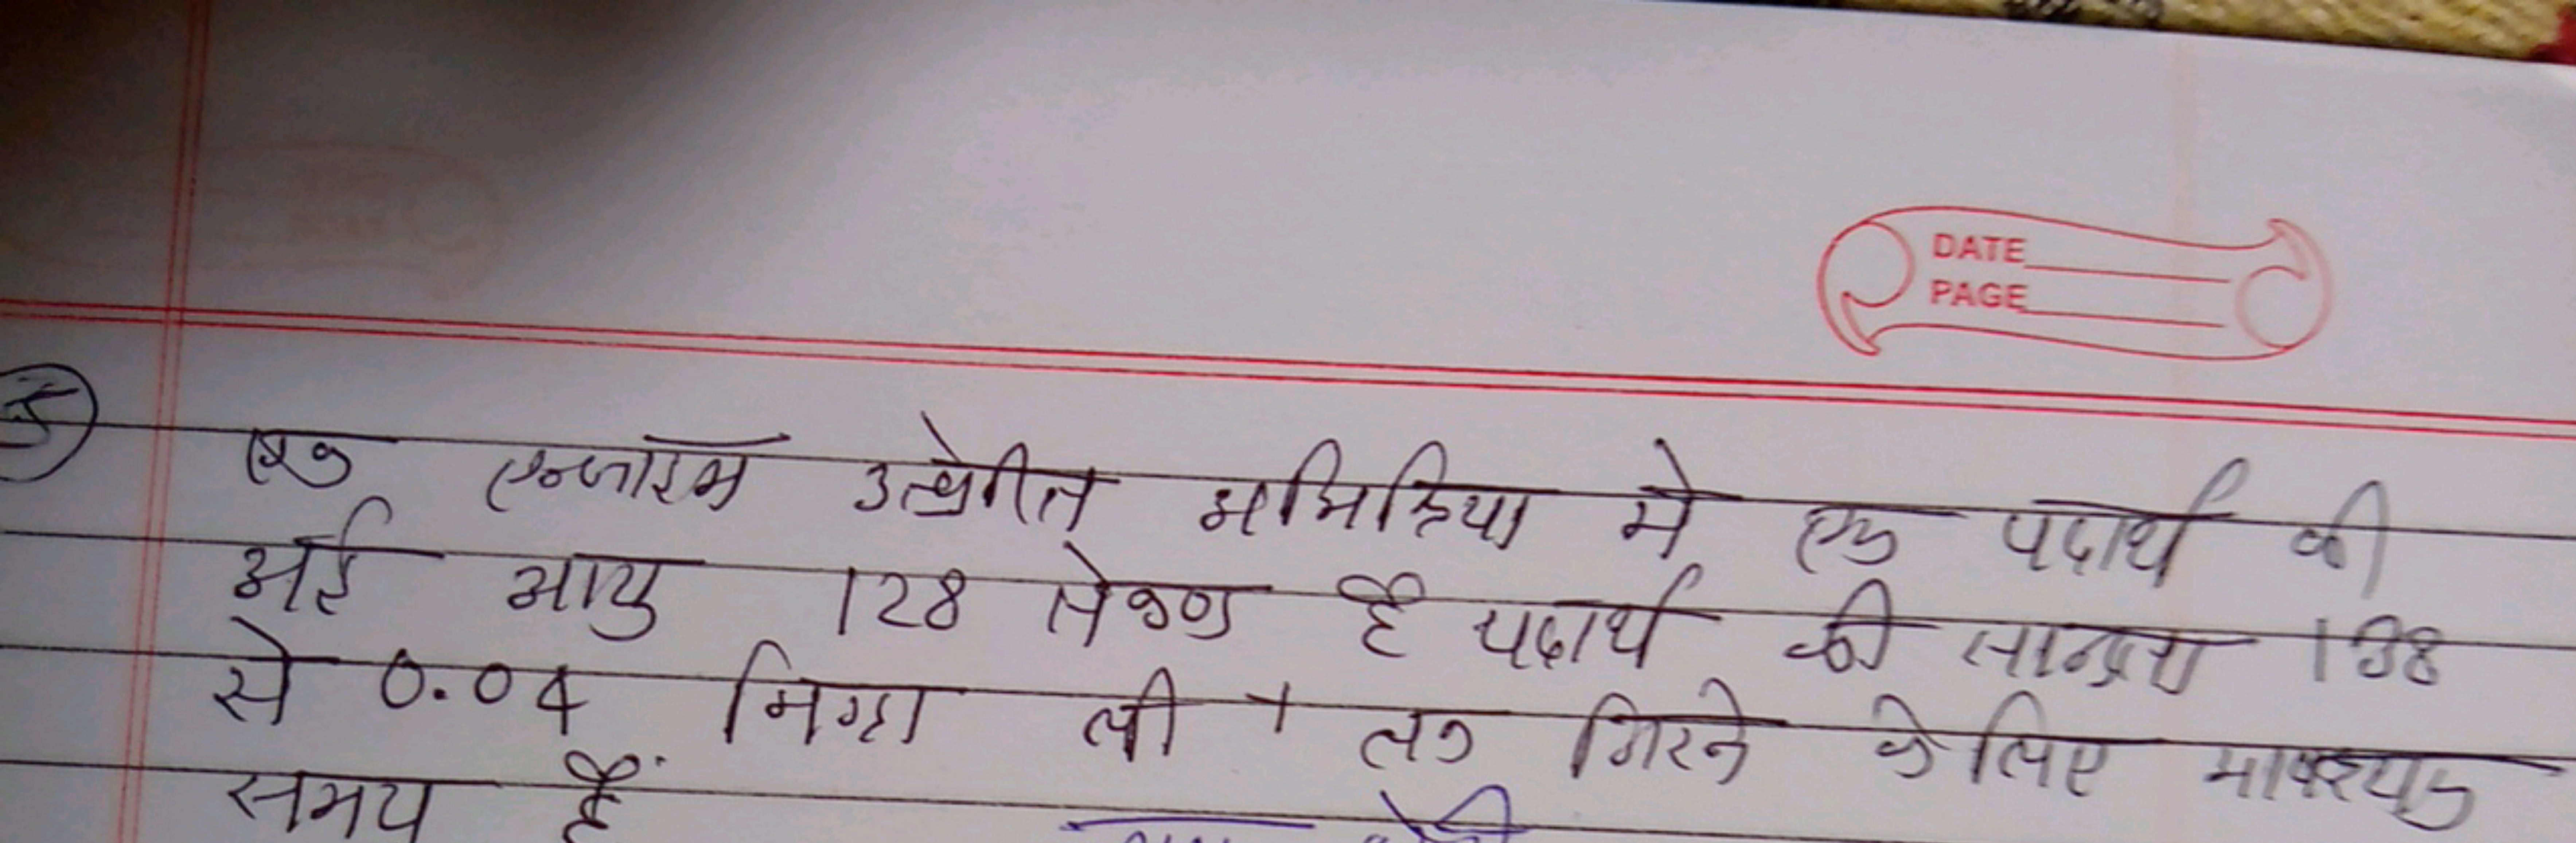 DATE
PAGE
एक एन्जाइम उत्प्रेरित अभिक्रिया मे एक पदार्थ की
अर्द्ध आयु 128 सेकण्ड है पदार्थ की सान्द्रता 128
से 0.04 मिग्रा ली⁻¹ तक गिरने के लिए आवश्यक
समय है